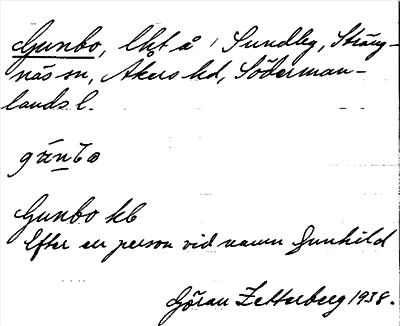 Gunbo, lht å Sundby, Sträng-
näs sn, Åkers hd, Söderman-
lands l.
Gunbo kb
Efter en person vid namn Gunhild
Göran Zetterberg 1938.